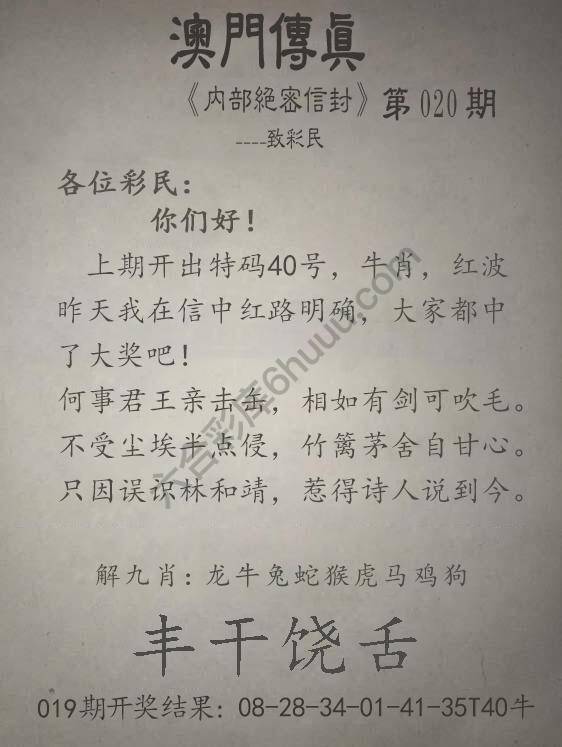 澳門傳眞
《内部絕密信封》第020期
----致彩民
各位彩民：
你们好！
上期开出特码40号，牛肖，红波
昨天我在信中红路明确，大家都中
了大奖吧！
何事君王亲击缶，相如有剑可吹毛。
不受尘埃半点侵，竹篱茅舍自甘心。
只因误识林和靖，惹得诗人说到今。
解九肖：龙牛兔蛇猴虎马鸡狗
丰干饶舌
019期开奖结果：08-28-34-01-41-35T40牛
六合彩库6huuu.com